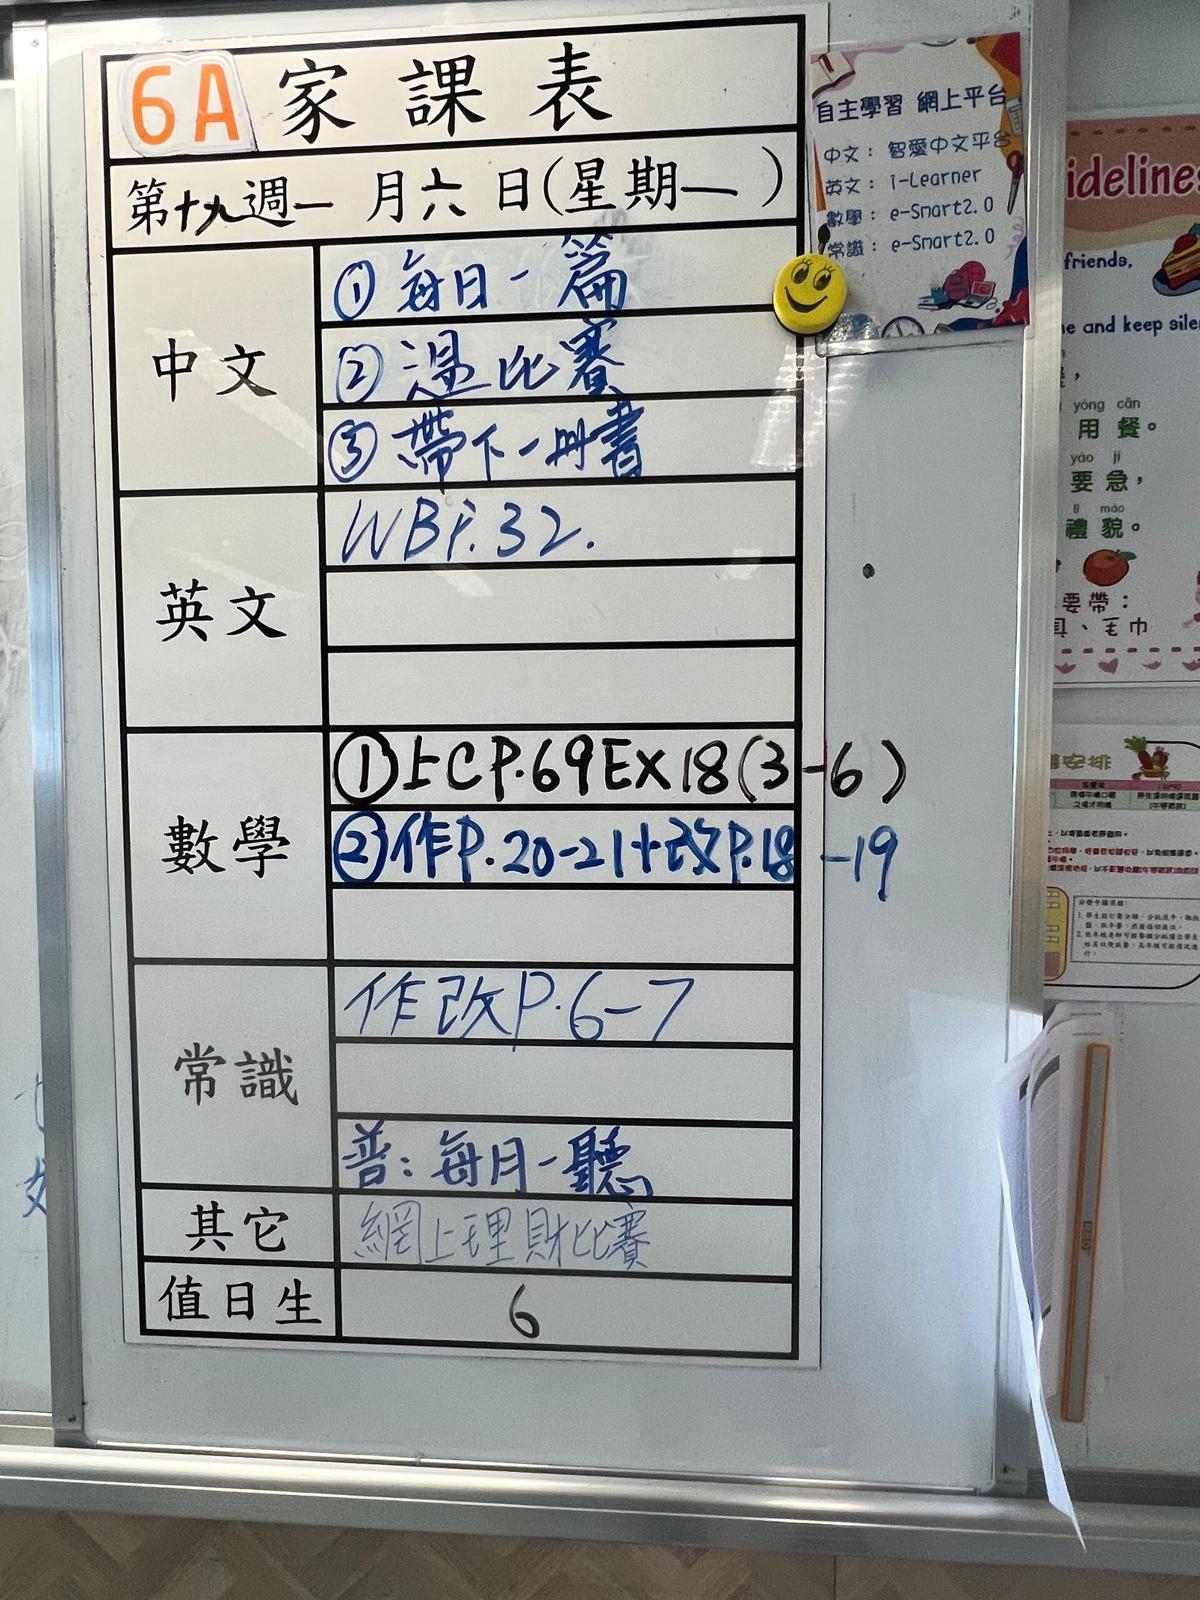 6A 家課表
第十九週一月六日(星期一)
中文
①每日一篇
②溫比賽
③帶下一冊書
英文
WB P.32.
數學
①上C P.69 EX 18(3-6)
②作P.20-21+改P.18-19
常識
作改P.6-7
普:每月一聽
其它
網上理財比賽
值日生
6
自主學習 網上平台
中文: 智愛中文平台
英文: i-Learner
數學: e-Smart2.0
常識: e-Smart2.0
idelines
friends,
e and keep sile
yòng cān
用餐。
yào jí
要急,
lǐ mào
禮貌。
要帶:
具、毛巾
安排